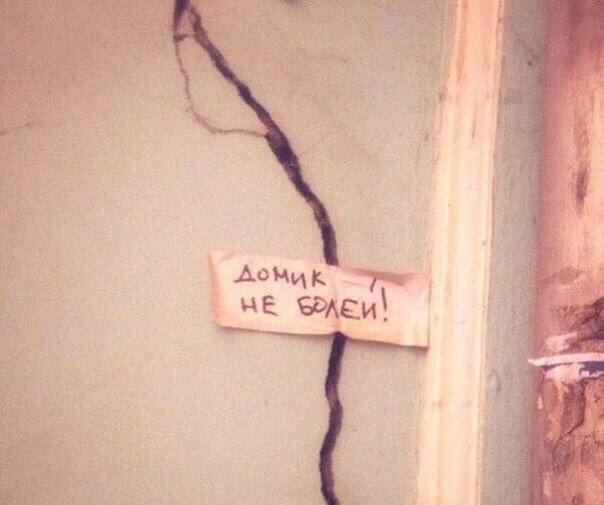 ДОМИК
НЕ БОЛЕЙ!